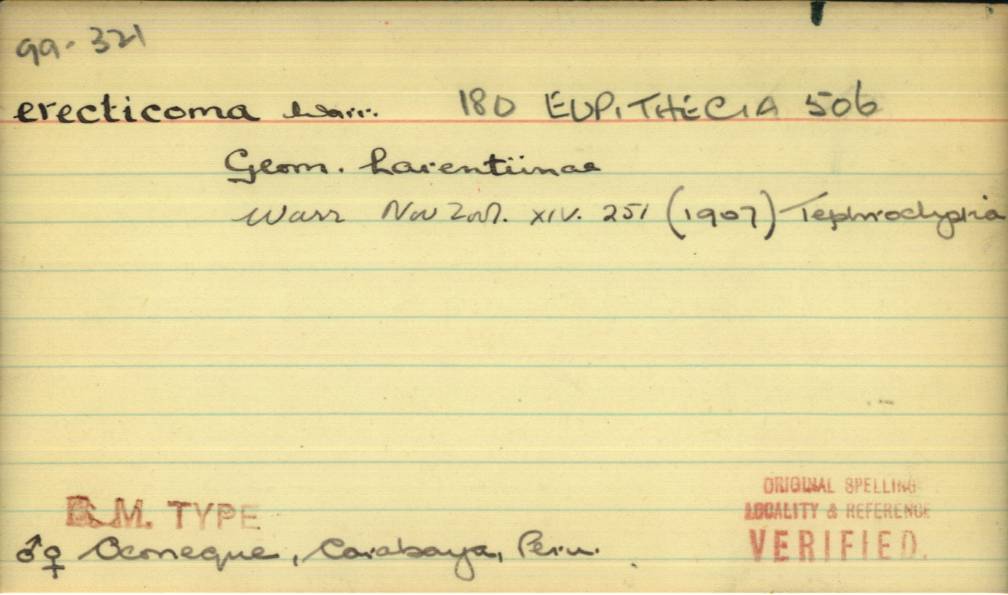 99-321
erecticoma Warr. 180 EUPITHECIA 506
Geom. Larentiinae
Warr Nov Zool. XIV. 251 (1907) Tephroclystia
B.M. TYPE
ORIGINAL SPELLING
LOCALITY & REFERENCE
VERIFIED.
♂♀ Oconeque, Carabaya, Peru.